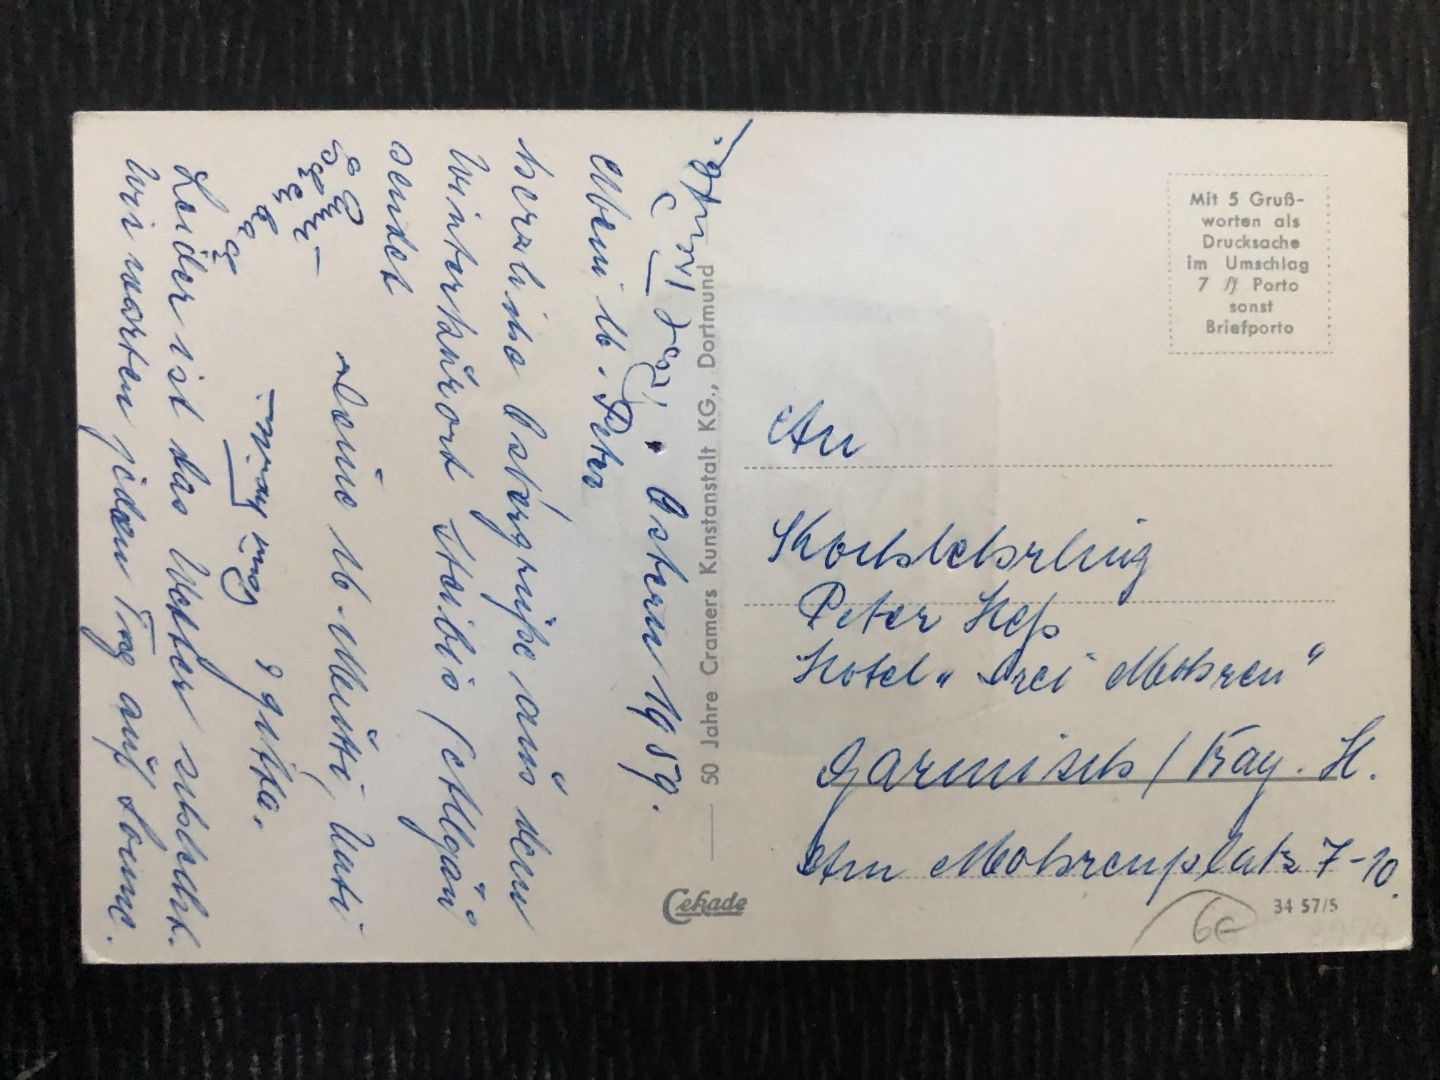 Ostern 1959.
Mein lb. Peter
herzliche Ostergrüße aus dem
Winterkurort Staibis (Allgäu
sendet
Deine lb. Mutti, Vati
Leider ist das Wetter schlecht.
Wir warten jeden Tag auf Sonne.
50 Jahre Cramers Kunstanstalt KG., Dortmund
Cekade
Mit 5 Gruß-
worten als
Drucksache
im Umschlag
7 ₰ Porto
sonst
Briefporto
An
Kochlehrling
Peter Heß
Hotel „Drei Mohren"
Garmisch/
Am Mohrenplatz 7-10.
34 57/5
6€